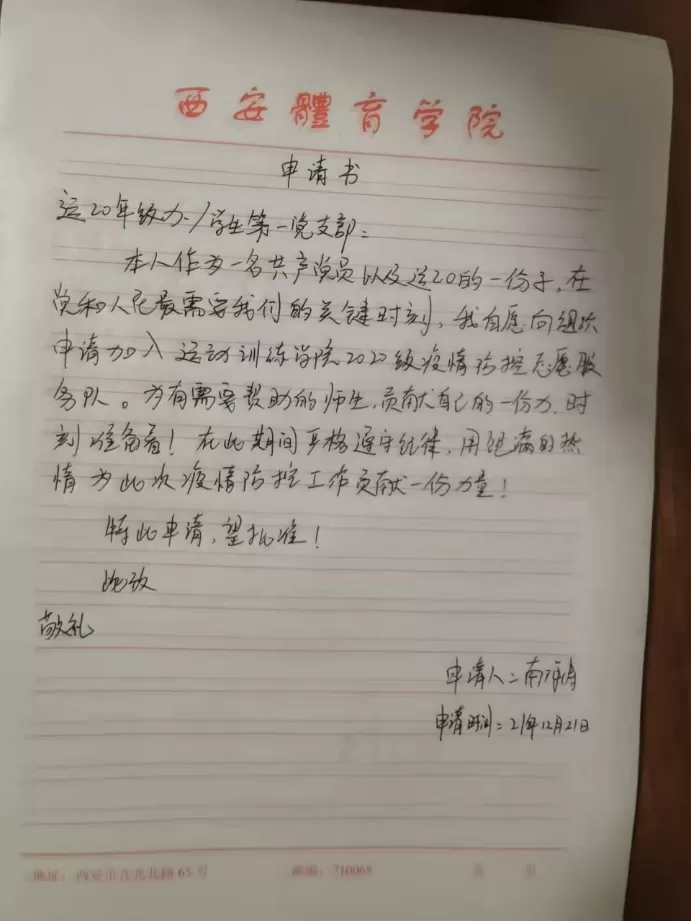 西安體育学院
申请书
运20年级办、学生第一党支部:
本人作为一名共产党员以及运20的一份子,在
党和人民最需要我们的关键时刻,我自愿向组织
申请加入运动训练学院2020级疫情防控志愿服
务队。为有需要帮助的师生,贡献自己的一份力,时
刻准备着!在此期间严格遵守纪律,用饱满的热
情为此次疫情防控工作贡献一份力量!
特此申请,望批准!
此致
敬礼
申请人:南
申请时间:21年12月21日
地址:西安市含光北路65号 邮编:710068 第 页